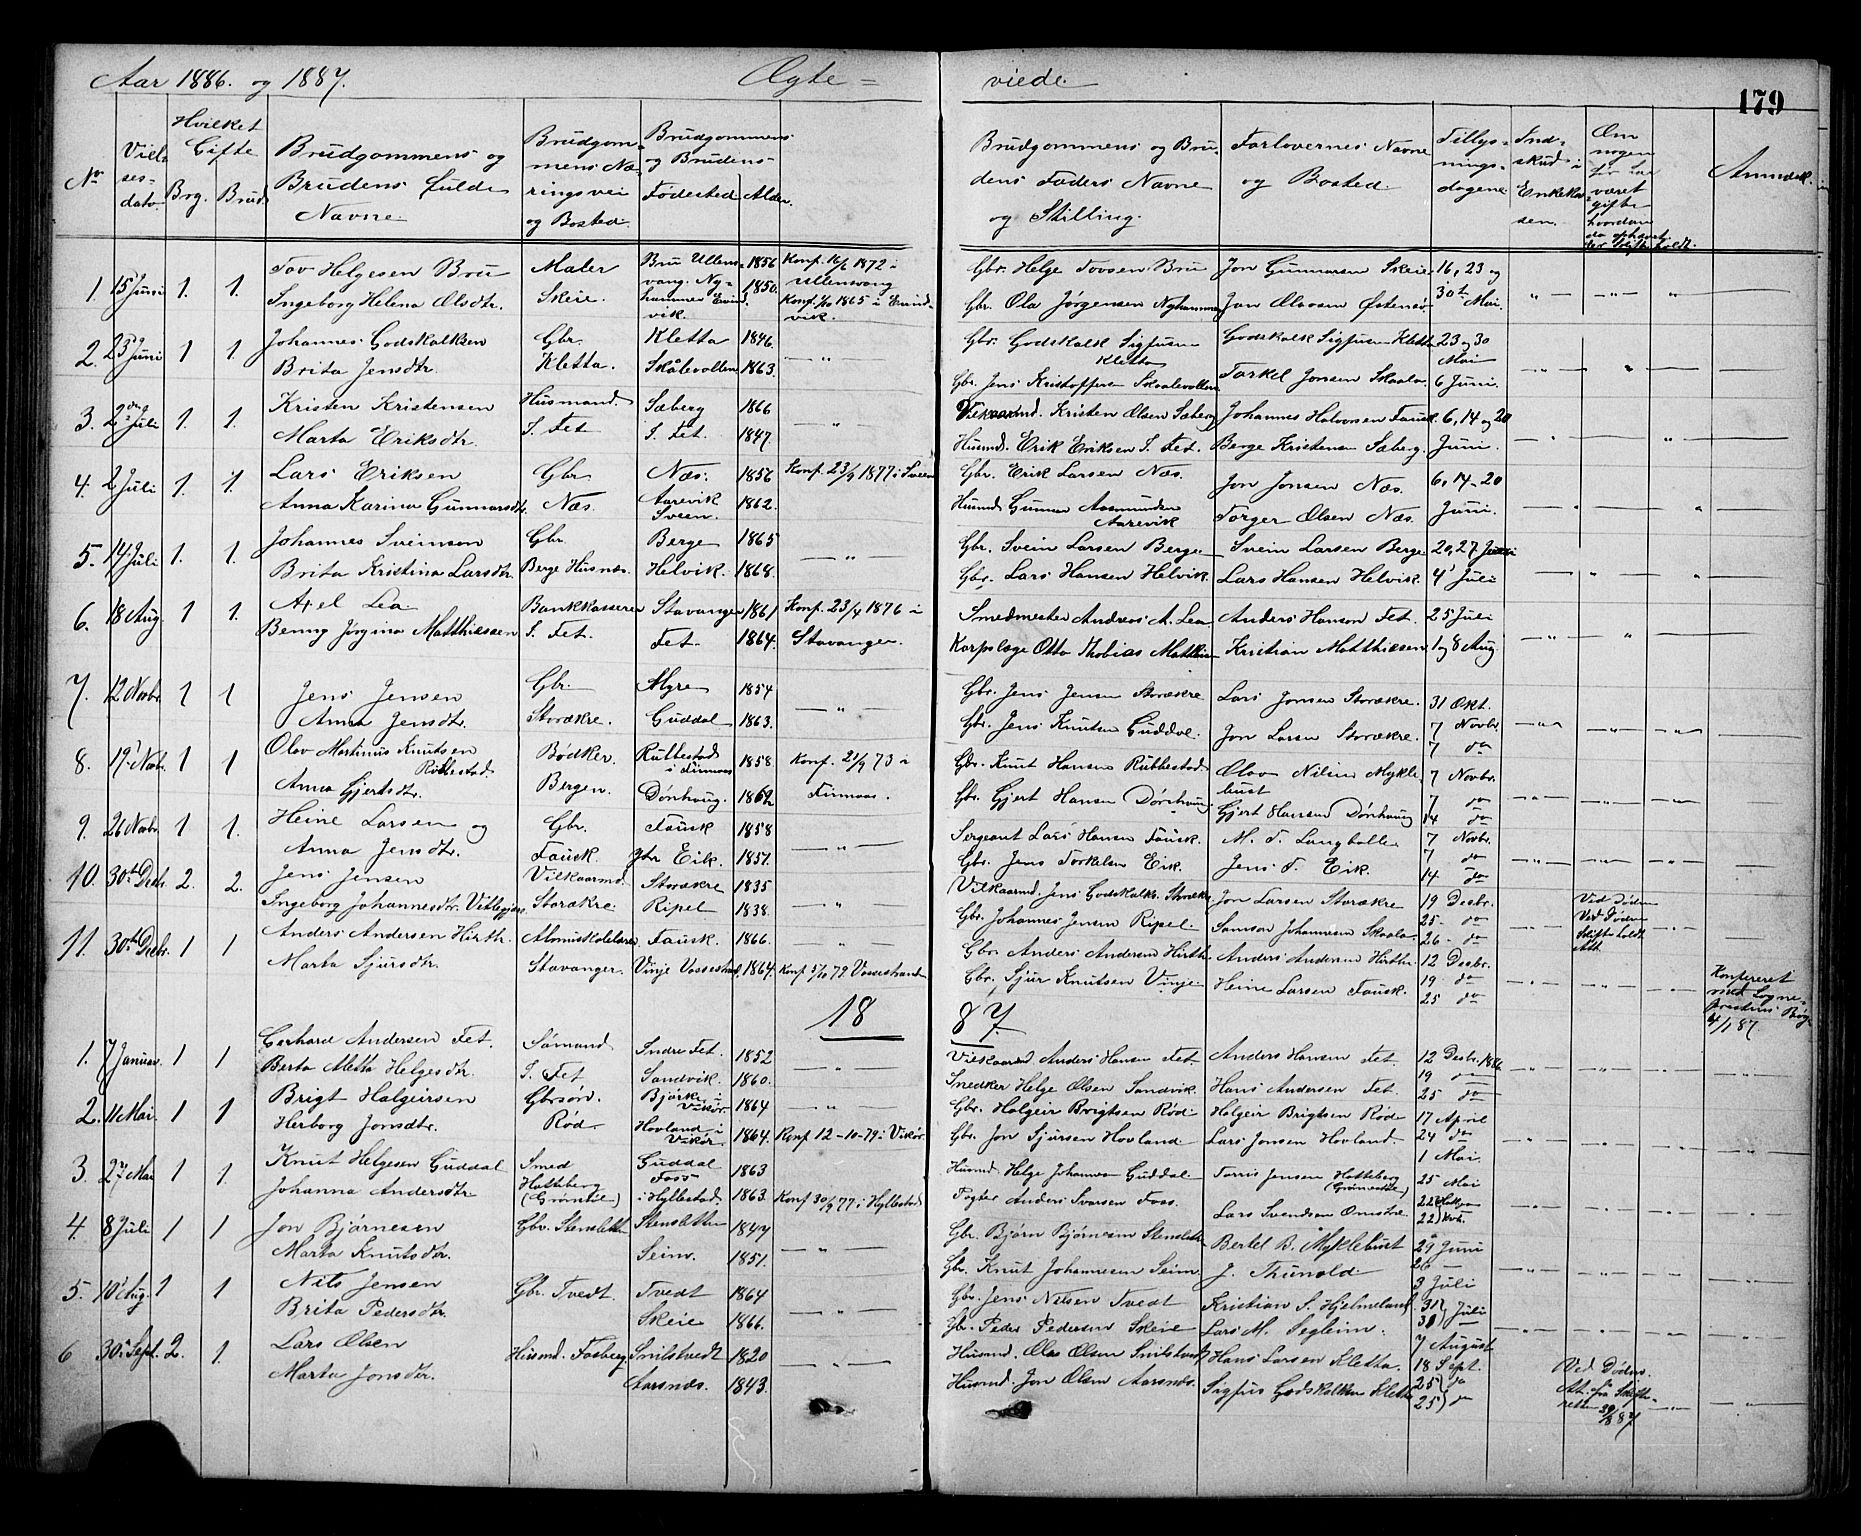 Aar 1886. og 1887.
Ægte =
viede.
179
No
Viel-
ses-
dato.
Hvilket
Gifte
Brg. Brud
Brudgommens og
Brudens fulde
Navne.
Brudgom-
mens Næ-
ringsvei
og Bosted.
Brudgommens
og Brudens
Fødested Alder.
Brudgommens og Bru-
dens Faders Navne
og Stilling.
Forlovernes Navne
og Bosted.
Tillys-
nings-
dagene
Ind-
skud i
Enkekas-
sen.
Om
nogen
været
gifte
hvordan
Anmærk.
1. 15 Juni 1. 1. Tov Helgesen Bru Maler Bru Ullens- 1856 Konf. 16/6 1872 i Gbr. Helge Tovsen Bru Jon Gunnarsen Skeie 16, 23 og
Ingeborg Helena Olsdtr. Skeie. vang. Ny- 1850. Ullensvang Gbr. Ola Jørgensen Nyhammer Jon Olavsen Østensø 30te Mai.
hammer Eivind- Konf. 1865 i Eivind-
vik. vik.
2. 23 Juni 1 1. Johannes Godskalksen Gbr. Kletta 1846. Gbr. Godskalk Sigfusen Godskalk Sigfusen Kletta 23 og 30
Kletta Mai
Brita Jensdtr. Kletta. Skålevollen 1863. Gbr. Jens Kristoffersen Skaalevollen Torkel Jonsen Skaala. 6 Juni.
3. 2den Juli 1. 1. Kristen Kristensen Husmand. Sæberg 1866 Vilkaarmd. Kristen Olsen Sæberg Johannes Halvorsen Fausk. 6, 14 og 20
Marta Eriksdtr. I. Fet I. Fet. 1847. Husmd. Erik Eriksen I. Fet. Berge Kristensen Sæberg. Juni.
4. 2 Juli 1. 1. Lars Eriksen Gbr Næs. 1856 Konf. 23/9 1877 i Sveen Gbr. Erik Larsen Næs. Jon Jonsen Næs. 6, 14 - 20
Anna Karina Gunnarsdtr. Næs. Aarevik 1862. Husmd Gunnar Aasmundsen Torger Olsen Næs. Juni.
Sveen. Aarevik
5. 14 Juli 1. 1. Johannes Sveinsen Gbr Berge 1865 Gbr. Svein Larsen Berge Svein Larsen Berge 20, 27 Juni
Brita Kristina Larsdtr. Berge Husnæs. Helvik. 1868. Gbr. Lars Hansen Helvik. Lars Hansen Helvik. 4 Juli
6. 18 Aug. 1 1. Axel Lea Bankkasserer Stavanger 1861 Konf. 23/4 1876 i Smedmester Andreas A. Lea Anders Hansen Fet. 25 Juli
Benny Jørgina Matthiesen I. Fet. Fet. 1864. Stavanger. Korpslæge Otto Thobias Matthiesen Kristian Matthiesen 1 og 8 Aug
7. 12 Novbr. 1 1 Jens Jensen Gbr Myre 1854 Gbr. Jens Jensen Storækre Lars Jonsen Storækre. 31 Okt.
Anna Jensdtr. Storækre. Guddal 1863. Gbr. Jens Knutsen Guddal. Jon Larsen Storækre. 7 Novbr.
7 do
8. 19 Novbr. 1 1 Olav Martinus Knutsen Bødker Rubbestad 1858. Konf. 21/9 73 i Gbr. Knut Hansen Rubbestad Olav Nilsen Mykle- 7 Novbr.
Rubbestad i Finnaas bust
Anna Gjertsdtr. Bergen. Dønhaug. 1862 Finnaas. Gbr. Gjert Hansen Dønhaug Gjert Hansen Dønhaug 7 do
14 do
9. 26 Novbr. 1 1. Heine Larsen og Gbr. Fausk 1858 Sergeant Lars Hansen Fausk. M. T. Langballe 7 Novbr.
Anna Jensdtr. Fausk. Ytr Eik. 1857. Gbr. Jens Torkelsen Eik. Jens T. Eik. 7 do
14 do
10. 30te Desbr. 2. 2. Jens Jensen Vilkaarmd. Storækre 1835 Vilkaarmd. Jens Godskalks. Storækre Jon Larsen Storækre 19 Desbr. Ved Døden
Ingeborg Johannesdtr. Storækre. Ripel 1838. Gbr. Johannes Jensen Ripel. Samson Johannesen Skaala. 25 do Ved Døden
26 - do Skifte holdt
Att.
11. 30te Desbr. 1 1 Anders Andersen Hirth. Almueskolelærer Fausk. 1866. Gbr. Anders Andersen Hirth. Anders Andersen Hirth. 12 Desbr.
Marta Sjursdtr. Stavanger. Vinje Vossestrand. 1864. Konf 5/10 79 Vossestranden Gbr. Sjur Knutsen Vinje. Heine Larsen Fausk. 19 do
25 do
Konfereret
med Sogne-
4/1 87
18 87.
1. 7 Januar. 1 1 Gerhard Andersen Fet. Sømand. Indre Fet. 1852 Vilkaarmd Anders Hansen Fet. Anders Hansen Fet. 12 Desbr. 1886
Berta Metta Helgesdtr. I. Fet Sandvik. 1860. Snedker Helge Olsen Sandvik. Hans Andersen Fet. 19 do
25 do
2. 11 Mai 1 1 Brigt Halgeirsen Gbrsøn. Bjørke i 1864 Gbr. Holgeir Brigtsen Rød Holgeir Brigtsen Røde 17 April
Vikør.
Herborg Jonsdtr. Rød. Hovland i 1864. Konf 12 - 10 - 79 i Vikør. Gbr. Jon Sjursen Hovland Lars Jonsen Hovland. 24 do
Vikør. 1 Mai.
3. 27 Mai 1 1. Knut Helgesen Guddal Smed Guddal 1863 Husmd. Helge Johannesen Guddal Torris Jensen Hatteberg 25 Mai
Johanna Andersdtr Hatteberg Foss i Hyllestad 1863. Konf 30/9 77 i Hyllestad Fogter Anders Ivarsen Foss. Lars Svendsen Omstre. 22
(Grøntlie)
4. 8 Juli 1 1 Jon Bjørnesen Gbr. Stensletten Stensletten 1847 Gbr. Bjørn Bjørnesen Stensletten Bertel B. Myklebust 29 Juni
Marta Knutsdtr. Seim. 1851. Gbr. Knut Johannesen Seim. J. Thunold. 26 —
3 Juli
5. 10 Aug. 1 1 Nils Jensen Gbr. Tvedt. Tvedt 1864 Gbr. Jens Nilsen Tvedt Kristian S. Hjelmeland. 31 Juli
Brita Pedersdtr. Skeie 1866. Gbr. Peder Pedersen Skeie Lars M. Segleim. 31
7 August
6 30 Sept. 2. 1. Lars Olsen Husmd. Fosberg. Snilstvedt 1820 Husmd. Ola Olsen Snilstvedt Hans Larsen Kletta. 18 Sept. Ved Døden.
Marta Jonsdtr. Aarsnæs. 1843. Husmd. Jon Olsen Aarsnæs. Sigfus Godskalksen Kletta 25 do Att. fra Skifte-
25 retten 29/8 87